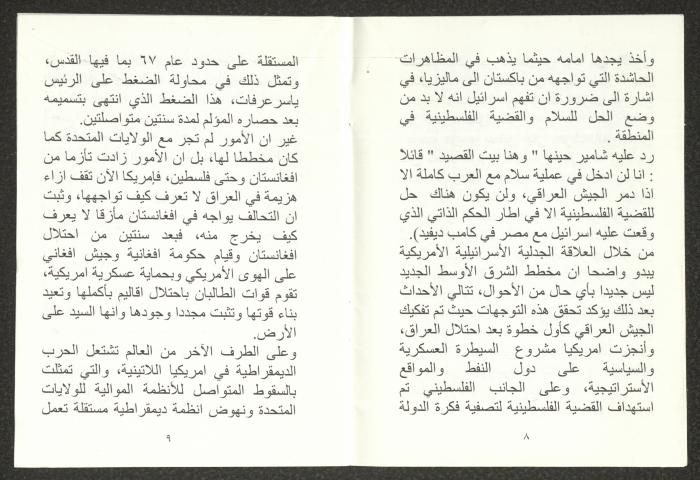 وأخذ يجدها امامه حيثما يذهب في المظاهرات
الحاشدة التي تواجهه من باكستان الى ماليزيا، في
اشارة الى ضرورة ان تفهم اسرائيل انه لا بد من
وضع الحل للسلام والقضية الفلسطينية في
المنطقة .
رد عليه شامير حينها " وهنا بيت القصيد " قائلاً
: انا لن ادخل في عملية سلام مع العرب كاملة الا
اذا دمر الجيش العراقي، ولن يكون هناك حل
للقضية الفلسطينية الا في اطار الحكم الذاتي الذي
وقعت عليه اسرائيل مع مصر في كامب ديفيد).
من خلال العلاقة الجدلية الأسرائيلية الأمريكية
يبدو واضحا ان مخطط الشرق الأوسط الجديد
ليس جديدا بأي حال من الأحوال، تتالي الأحداث
بعد ذلك يؤكد تحقق هذه التوجهات حيث تم تفكيك
الجيش العراقي كأول خطوة بعد احتلال العراق،
وأنجزت امريكيا مشروع السيطرة العسكرية
والسياسية على دول النفط والمواقع
الأستراتيجية، وعلى الجانب الفلسطيني تم
استهداف القضية الفلسطينية لتصفية فكرة الدولة
٨
المستقلة على حدود عام ٦٧ بما فيها القدس،
وتمثل ذلك في محاولة الضغط على الرئيس
ياسرعرفات، هذا الضغط الذي انتهى بتسميمه
بعد حصاره المؤلم لمدة سنتين متواصلتين.
غير ان الأمور لم تجر مع الولايات المتحدة كما
كان مخططا لها، بل ان الأمور زادت تأزما من
افغانستان وحتى فلسطين، فإمريكا الآن تقف ازاء
هزيمة في العراق لا تعرف كيف تواجهها، وثبت
ان التحالف يواجه في افغانستان مأزقا لا يعرف
كيف يخرج منه، فبعد سنتين من احتلال
افغانستان وقيام حكومة افغانية وجيش افغاني
على الهوى الأمريكي وبحماية عسكرية امريكية،
تقوم قوات الطالبان باحتلال اقاليم بأكملها وتعيد
بناء قوتها وتثبت مجددا وجودها وانها السيد على
الأرض.
وعلى الطرف الآخر من العالم تشتعل الحرب
الديمقراطية في امريكيا اللاتينية، والتي تمثلت
بالسقوط المتواصل للأنظمة الموالية للولايات
المتحدة ونهوض انظمة ديمقراطية مستقلة تعمل
٩